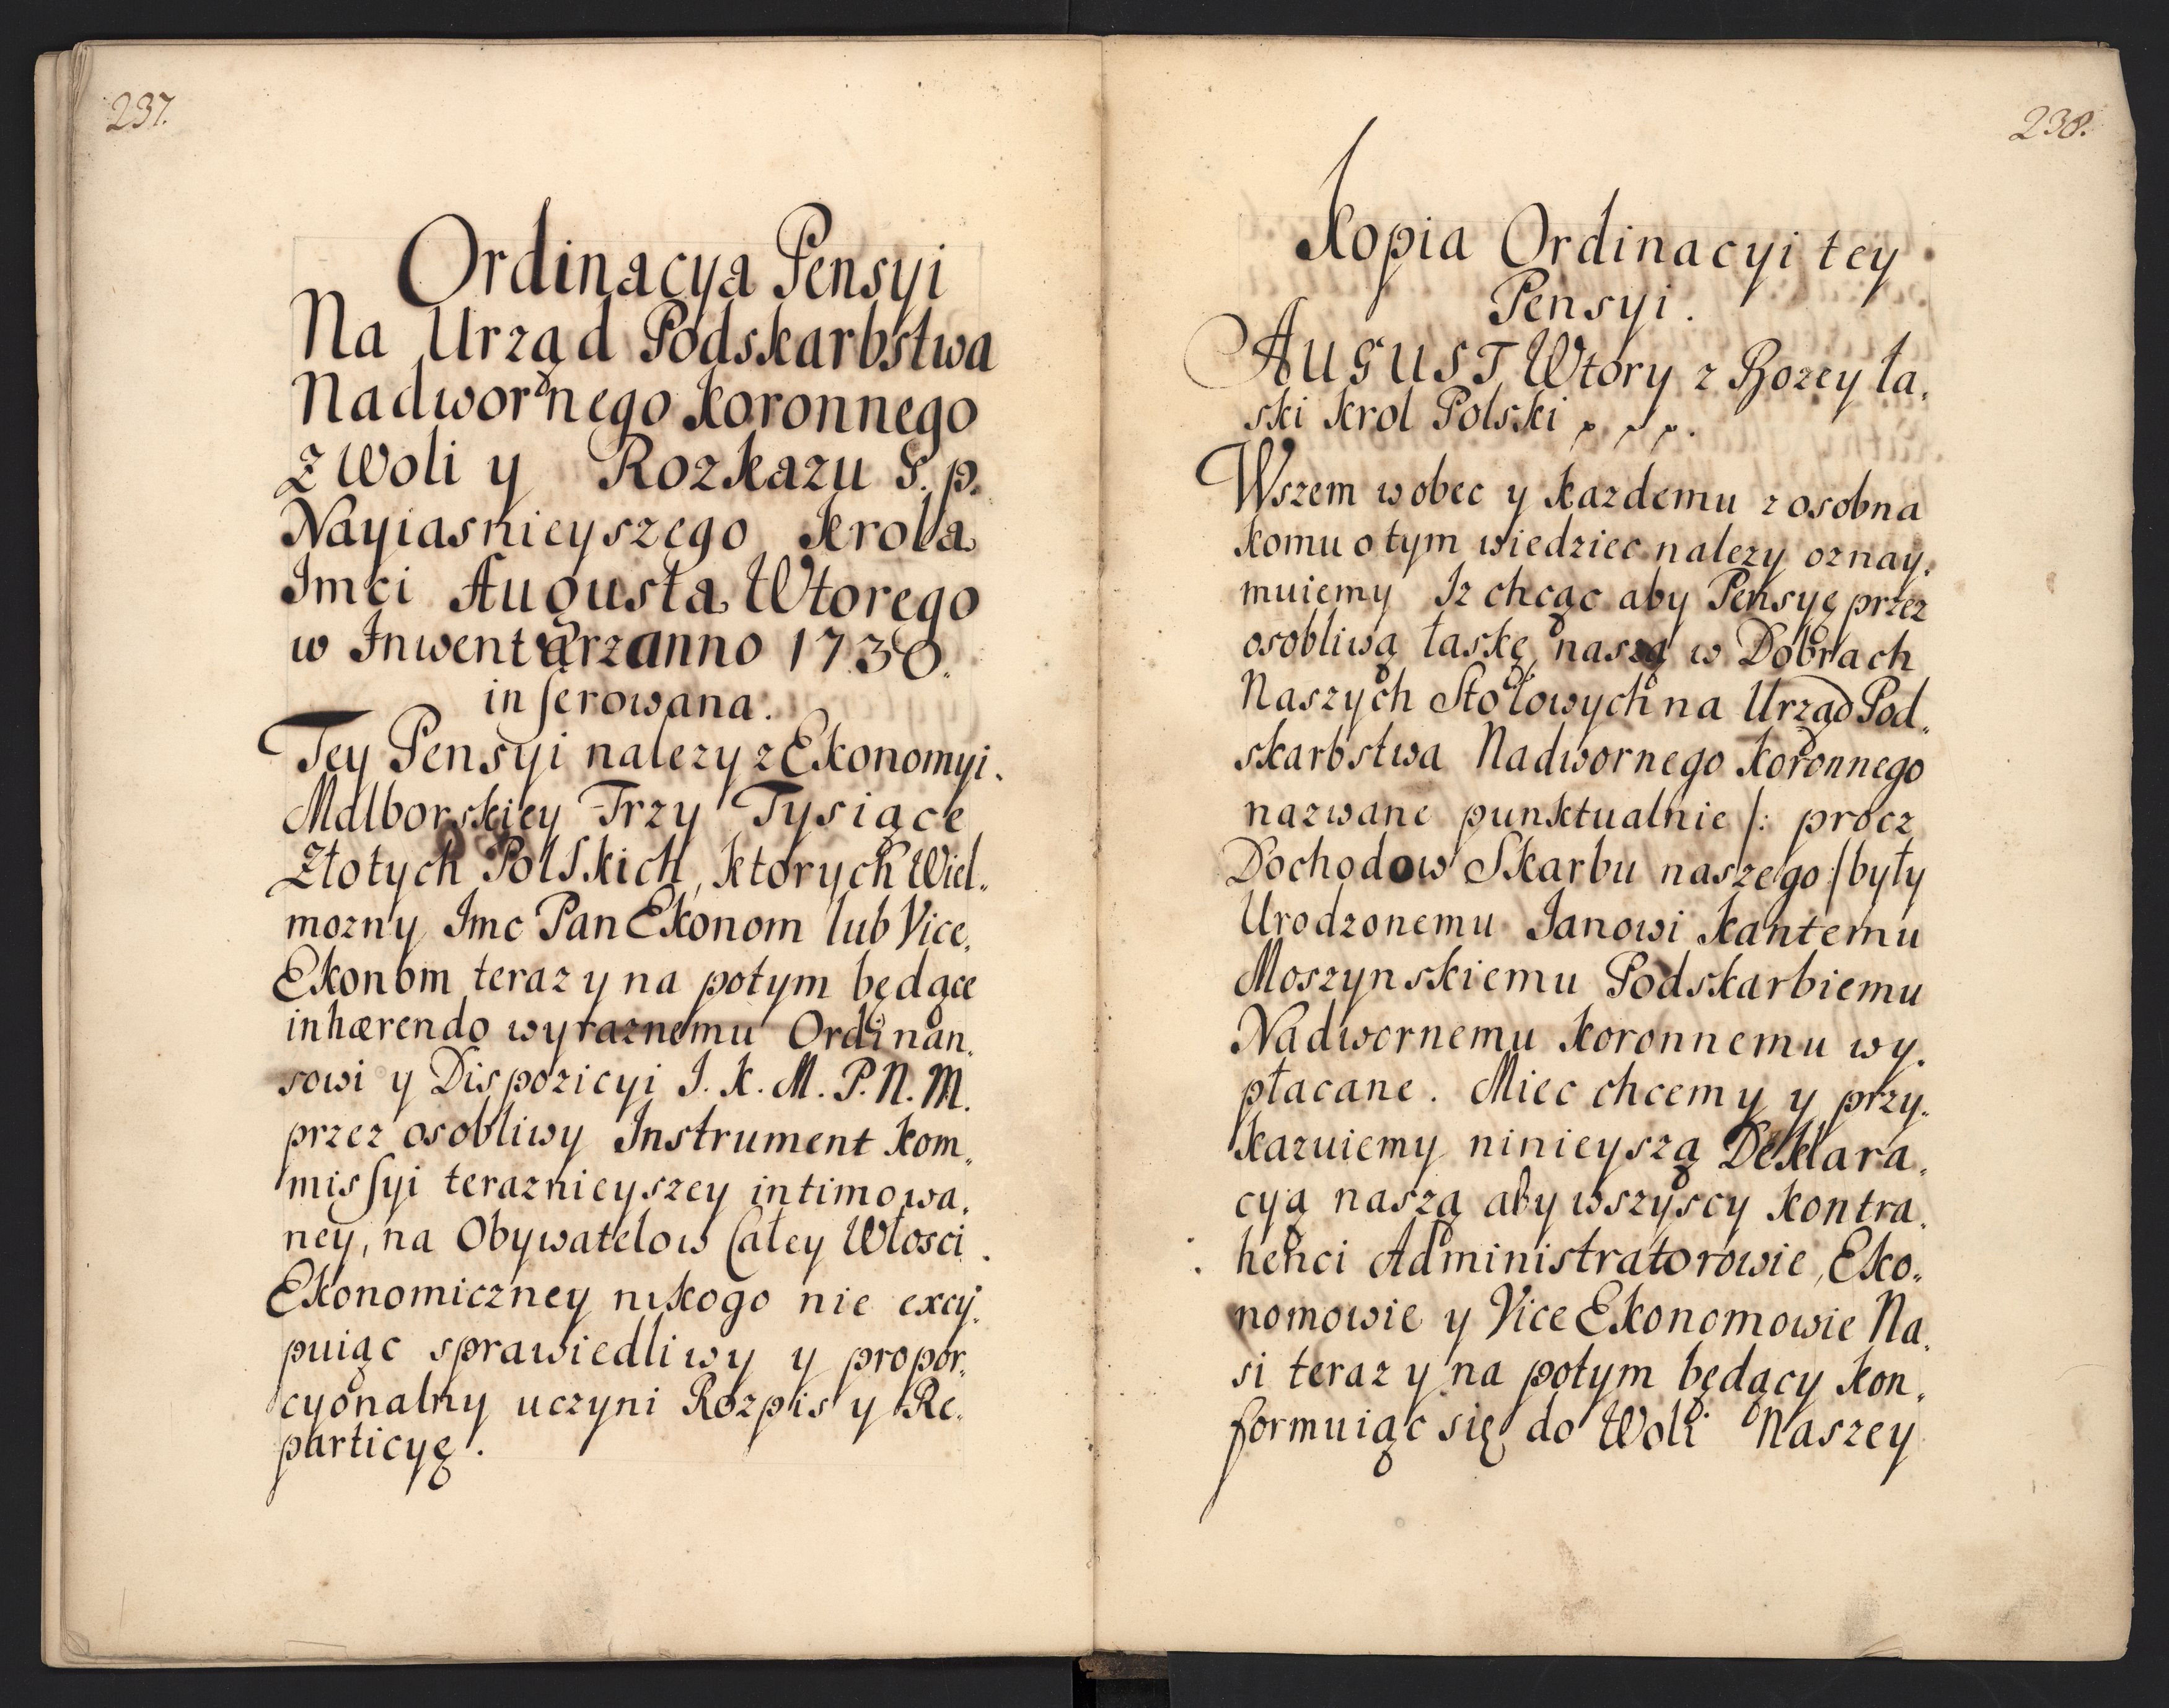 237.
Ordinacya Pensyi
Na Urząd Podskarbstwa
Nadwornego Koronnego
z Woli y Rozkazu S. p.
Nayiasnieyszego Krola
Imci Augusta Wtorego
w Inwentarz anno 1730.
inserowana.
Tey Pensyi nalezy z Ekonomyi
Malborskiey Trzy Tysiące
Złotych Polskich, ktorych Wiel„
mozny Imc Pan Ekonom lub Vice„
Ekonom teraz y na potym będące
inhærendo wyraznemu Ordinan„
sowi y Dispozicyi I. K. M. P. N. M.
przez osobliwy Instrument Kom„
missyi teraznieyszey intimowa„
ney, na Obywatelow Całey Włosci
Ekonomiczney nikogo nie excy„
puiąc sprawiedliwy y propor„
cyonalny uczyni Rozpis y Re„
particyę.
238.
Kopia Ordinacyi tey
Pensyi.
August Wtory z Bozey ła„
ski Krol Polski
Wszem wobec y kazdemu z osobna
komu o tym wiedziec nalezy oznay„
muiemy Iz chcąc aby Pensyę przez
osobliwą łaskę naszą w Dobrach
Naszych Stołowych na Urząd Pod„
skarbstwa Nadwornego Koronnego
nazwane punktualnie /: procz
Dochodow Skarbu naszego :/ były
Urodzonemu Janowi Kantemu
Moszynskiemu Podskarbiemu
Nadwornemu Koronnemu wy„
płacane. Miec chcemy y przy„
kazuiemy ninieyszą Deklara„
cyą naszą aby wszyscy Kontra„
henci Administratorowie, Eko„
nomowie y Vice Ekonomowie Na„
si teraz y na potym będący kon„
formuiąc się do Woli Naszey